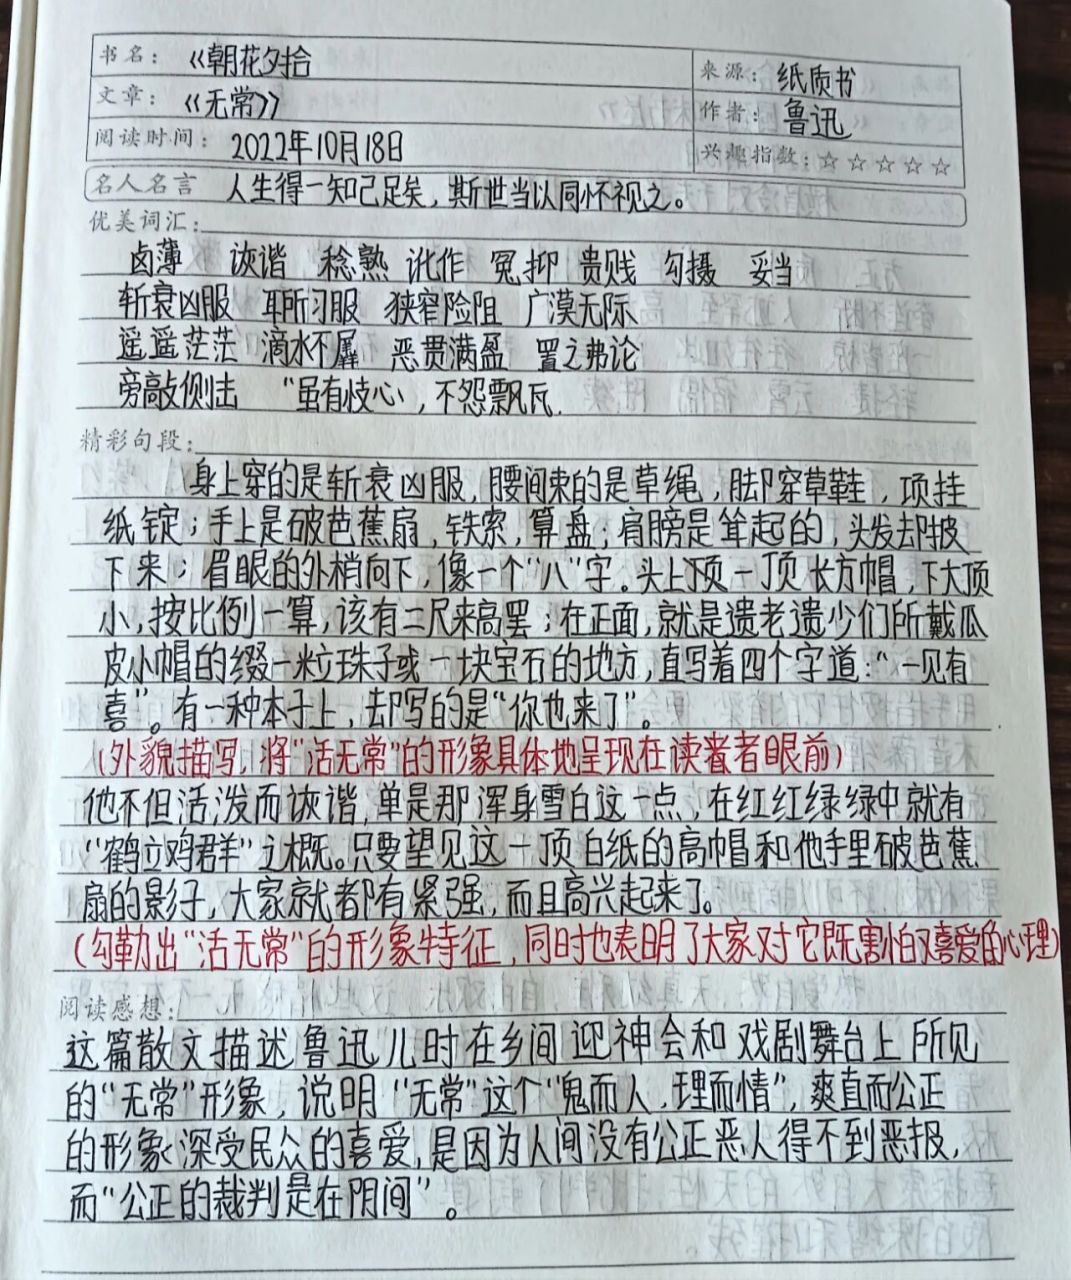 书名：《朝花夕拾
来源：纸质书
文章：《无常》》
作者：鲁迅
阅读时间：2022年10月18日
兴趣指数：☆☆☆☆☆
名人名言 人生得一知己足矣，斯世当以同怀视之。
优美词汇：
卤薄 诙谐 稔熟 讹作 冤抑 贵贱 勾摄 妥当
斩衰凶服 耳所习服 狭窄险阻 广漠无际
遥遥茫茫 滴水不羼 恶贯满盈 置之弗论
旁敲侧击 “虽有忮心，不怨飘瓦.
精彩句段：
身上穿的是斩衰凶服，腰间束的是草绳，脚穿草鞋，项挂
纸锭；手上是破芭蕉扇，铁索，算盘；肩膀是耸起的，头发却披
下来；眉眼的外梢向下，像一个“八”字。头上顶一顶长方帽，下大顶
小，按比例一算，该有二尺来高罢；在正面，就是遗老遗少们所戴瓜
皮小帽的缀一粒珠子或一块宝石的地方，直写着四个字道：“一见有
喜”。有一种本子上，却写的是“你也来了”。
（外貌描写，将“活无常”的形象具体地呈现在读者眼前）
他不但活泼而诙谐，单是那浑身雪白这一点，在红红绿绿中就有
“鹤立鸡群”之概。只要望见这一顶白纸的高帽和他手里破芭蕉
扇的影子，大家就都有紧强，而且高兴起来了。
（勾勒出“活无常”的形象特征，同时也表明了大家对它既害怕又喜爱的心理）
阅读感想：
这篇散文描述鲁迅儿时在乡间迎神会和戏剧舞台上所见
的“无常”形象，说明“无常”这个“鬼而人，理而情”，爽直而公正
的形象深受民众的喜爱，是因为人间没有公正恶人得不到恶报，
而“公正的裁判是在阴间”。